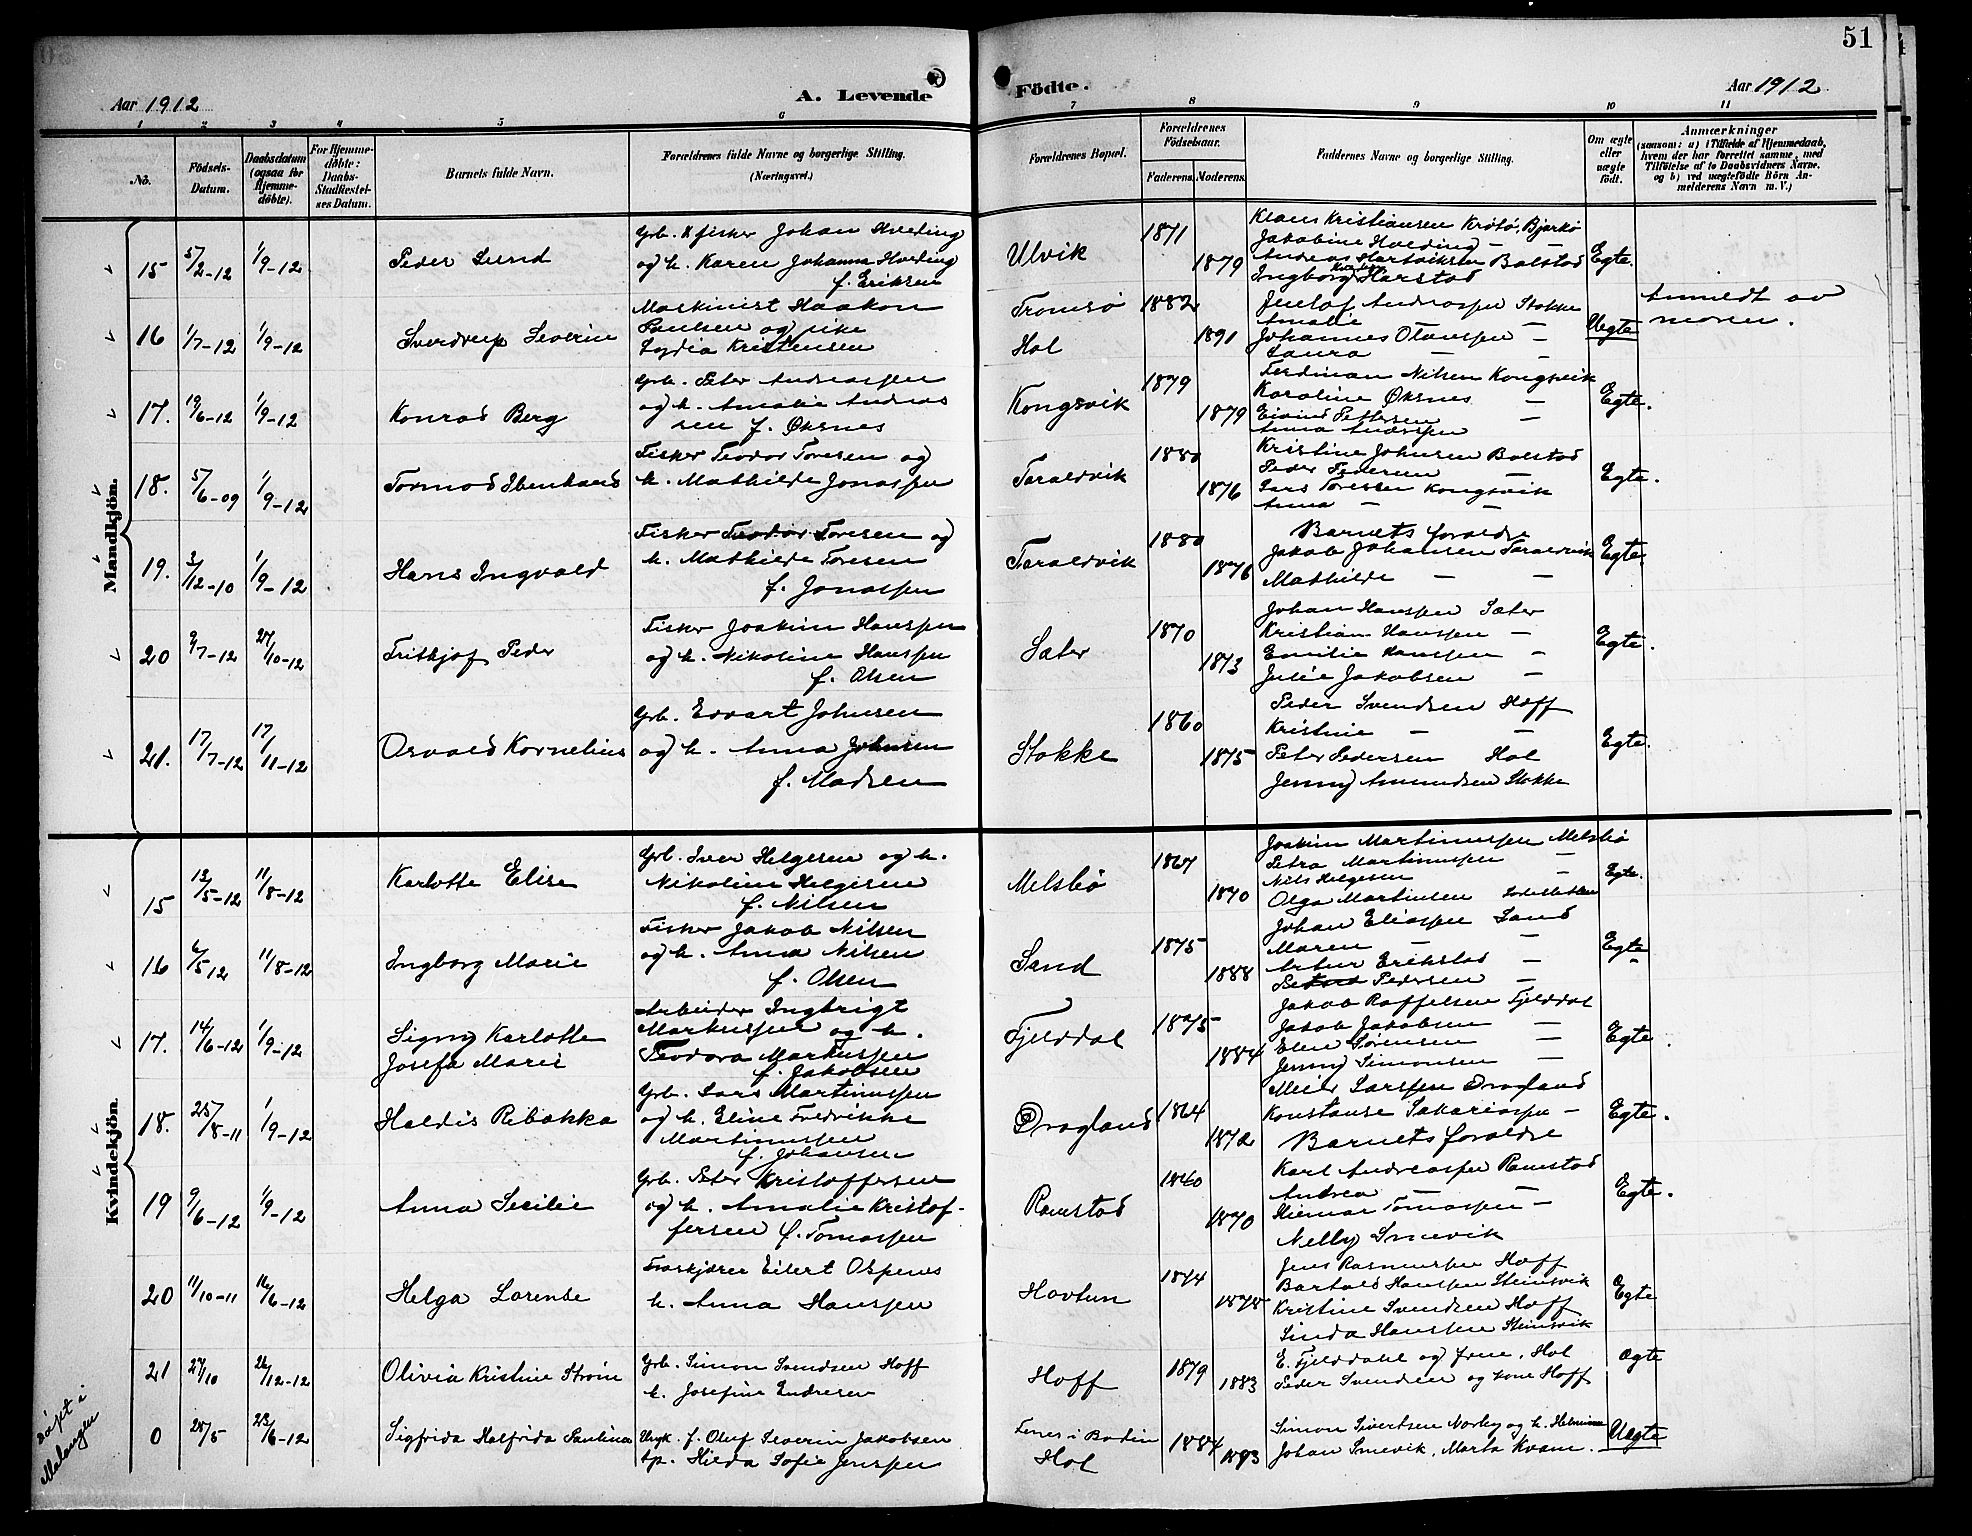 51
Aar 1912
A. Levende
Födte.
Aar 1912
1 2 3 4 5 6 7 8 9 10 11
No.
Födsels-
Datum.
Daabsdatum
(ogsaa for
Hjemme-
döbte).
For Hjemme-
döbte:
Daabs-
Stadfæstel-
ses Datum.
Barnets fulde Navn.
Forældrenes fulde Navne og borgerlige Stilling.
(Næringsvei.)
Forældrenes Bopæl.
Forældrenes
Födselsaar.
Faderens. Moderens.
Faddernes Navne og borgerlige Stilling.
Om ægte
eller
uægte
födt.
Anmærkninger
(saasom: a) i Tilfælde af Hjemmedaab,
hvem der har forrettet samme, med
Tilföielse af to Daabsvidners Navne.
og b) ved uægtefödte Börn An-
melderens Navn m. V.)
Mandkjön.
15 5/2-12 1/9-12 Peder Lund
Grb. & fisker Johan Hveding
og h. Karen Johanna Hveding
f. Eriksen
Ulvik 1871 1879
Klaus Kristiansen Krøtø, Bjarkø
Jakobine Hveding — —
Andreas Hartviksen Bolstad
Ingborg Harstad
Egte.
16 1/7-12 1/9-12 Sverdrup Severin
Maskinist Haakon
Paulsen og pike
Lydia Kristensen
Tromsø
Hol
1882 1891
Jentof Andreassen Stokke
Amalie — —
Johannes Olaussen —
Laura — —
Uegte
Anmeldt av
moren.
17. 19/6-12 1/9-12 Konrad Berg
Grb. Peter Andreassen
og h. Amalie Andreas
sen f. Øksnes
Kongsvik 1879 1879
Ferdinan Nilsen Kongsvik
Karoline Øksnes —
Eivind Pettersen —
Anna Anderssen
Egte.
18. 5/6-09 1/9-12 Tormod Ibenhard
Fisker Teodor Toresen og
h. Mathilde Jonassen
Taraldvik 1880 1876
Kristine Johnsen Bolstad
Peder Pedersen —
Lars Toressen Kongsvik
Anna — —
Egte.
19. 3/12-10 1/9-12 Hans Ingvald
Fisker Teodor Toresen og
h. Mathilde Toresen
f. Jonassen
Taraldvik 1880 1876
Barnets foraldre
Jakob Johansen Taraldvik
Mathilde — —
Egte.
20 9/7-12 27/10-12 Fritkjof Peder
Fisker Joakim Hanssen
og h. Nikoline Hanssen
f. Olsen
Sæter 1870 1873
Johan Hanssen Sæter
Kristian Hanssen —
Emilie Hanssen —
Julie Jakobsen —
Egte.
21. 17/7-12 17/11-12 Osvald Kornelius
Grb. Edvart Johnsen
og h. Anna Johnsen
f. Madsen
Stokke 1860 1875
Peder Svendsen Hoff
Kristine — —
Peter Pedersen Hol
Jenny Amundsen Stokke
Egte.
Kvindekjön.
15 13/5-12 11/8-12 Karlotte Elise
Grb. Iver Helgesen og h.
Nikoline Helgesen
f. Nilsen
Melsbø 1867 1870
Joakim Martinussen Melsbø
Petra Martinussen —
Nils Helgesen —
Olga Martinsen
Egte.
16 6/5 12 11/8-12 Ingborg Marie
Fisker Jakob Nilsen
og h. Anna Nilsen
f. Olsen
Sand 1875 1888
Johan Eliassen Sand
Maren — —
Artur Erikstad —
Pedersen —
Egte
17. 14/6-12 1/9-12 Signy Karlotte
Josefa Marie
Arbeider Ingbrigt
Markussen og h.
Teodora Markussen
f. Jakobsen
Fjelddal 1875 1884
Jakob Roffelsen Fjelddal
Jakob Jakobsen —
Elen Sørensen —
Jenny Simonsen —
Egte.
18. 25/8-11 1/9-12 Haldis Ribakka
Grb. Lars Martinussen
og h. Eline Fredrikke
Martinussen
f. Johansen
Dragland 1864 1872
Meier Larssen Dragland
Konstanse Sakariassen —
Barnets foraldre
Egte.
19 9/6-12 1/9-12 Anna Secilie
Grb. Peter Kristoffersen
og h. Amalie Kristof-
fersen f. Tomassen
Ramstad 1860 1870
Karl Andreassen Ramstad
Andrea — —
Hilmar Tomassen —
Nelly Smevik
Egte.
20 11/10-11 16/6-12 Helga Lorense
Eilert Ospenes
h. Anna Hanssen
Havtun 1874 1878
Jens Rasmussen Hoff
Bartold Hanssen Steinsvik
Kristine Svendsen Hoff
Linda Hanssen Steinsvik
Egte
21 27/10 26/12-12 Olivia Kristine Strøm
Grb. Simon Svendsen Hoff
h. Josefine Endresen
Hoff 1879 1883
E. Fjelddahl og frue, Hol
Peder Svendsen og kone Hoff
Ægte
døpt i
Malangen
0 28/5 23/6-12 Sigfrida Halfrida Paulina
Ungk. f. Oluf Severin Jakobsen
Sp. Hilda Sofie Jenssen
Tenes i Badin
Hol
1884 1893
Simon Sivertsen Norby og h.
Johan Smevik, Marta Kvam.
Uægte